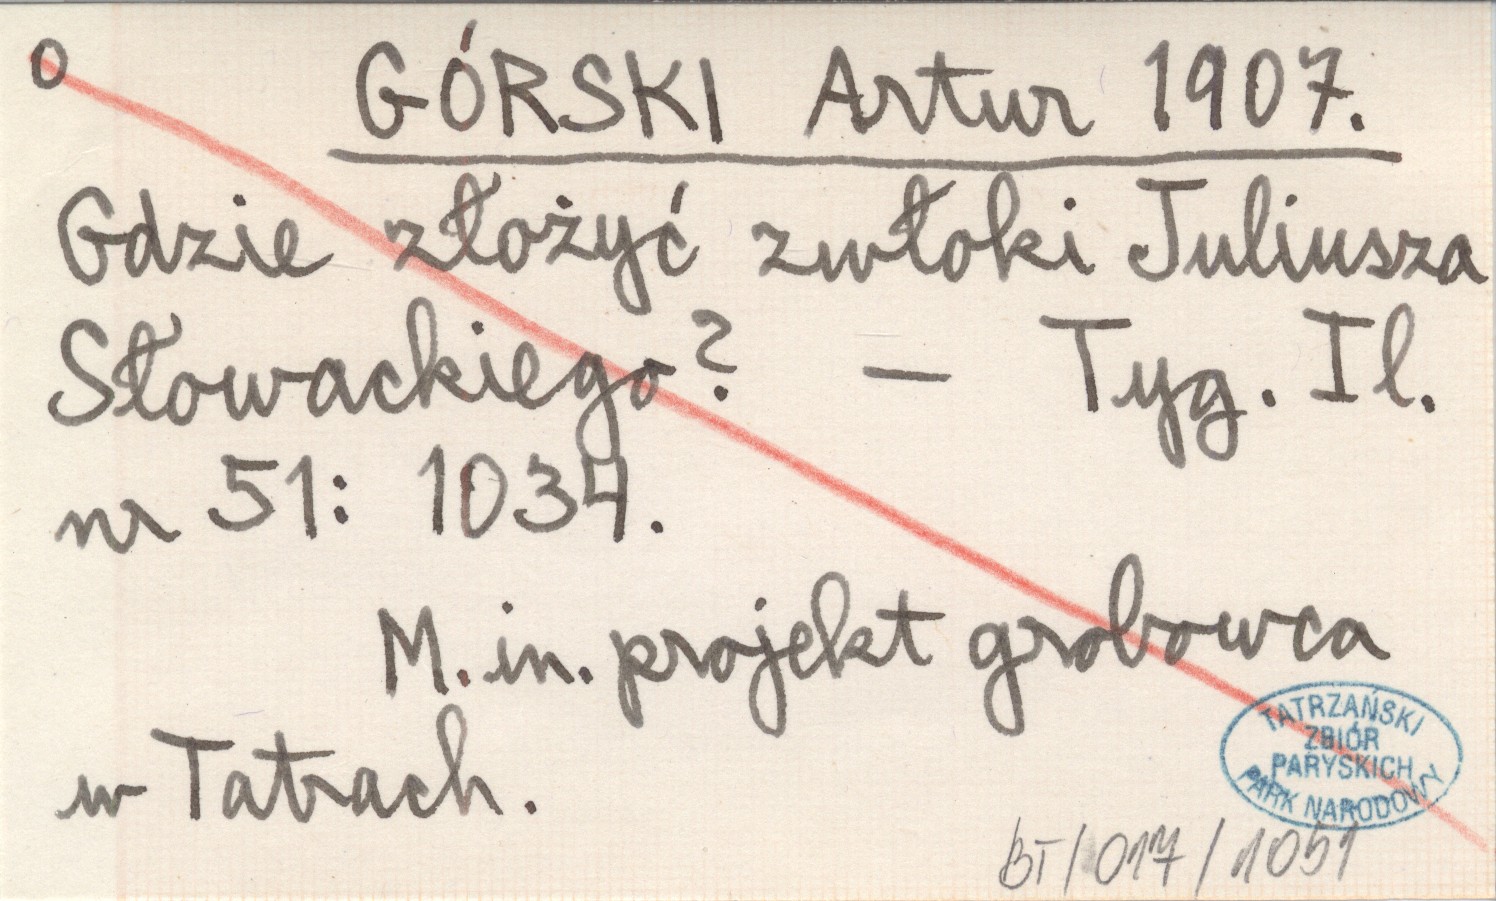 o GÓRSKI Artur 1907.
Gdzie złożyć zwłoki Juliusza
Słowackiego? — Tyg. Il.
nr 51: 1034.
M. in. projekt grobowca
w Tatrach.
TATRZAŃSKI
ZBIÓR
PARYSKICH
PARK NARODOWY
BT/017/1051